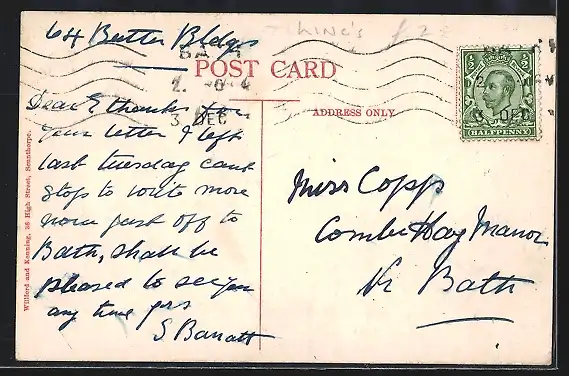 64 Butter Bldgs
LINC'S £2
BATH
POST CARD
3 DEC
ADDRESS ONLY.
HALFPENNY
Dear E thanks for
your letter I left
last tuesday cant
stop to write more
now just off to
Bath, shall be
pleased to see you
any time yrs
S Barratt
Miss Copps
Combe Hay Manor
Nr Bath
Willford and Kenning, 36 High Street, Scunthorpe.